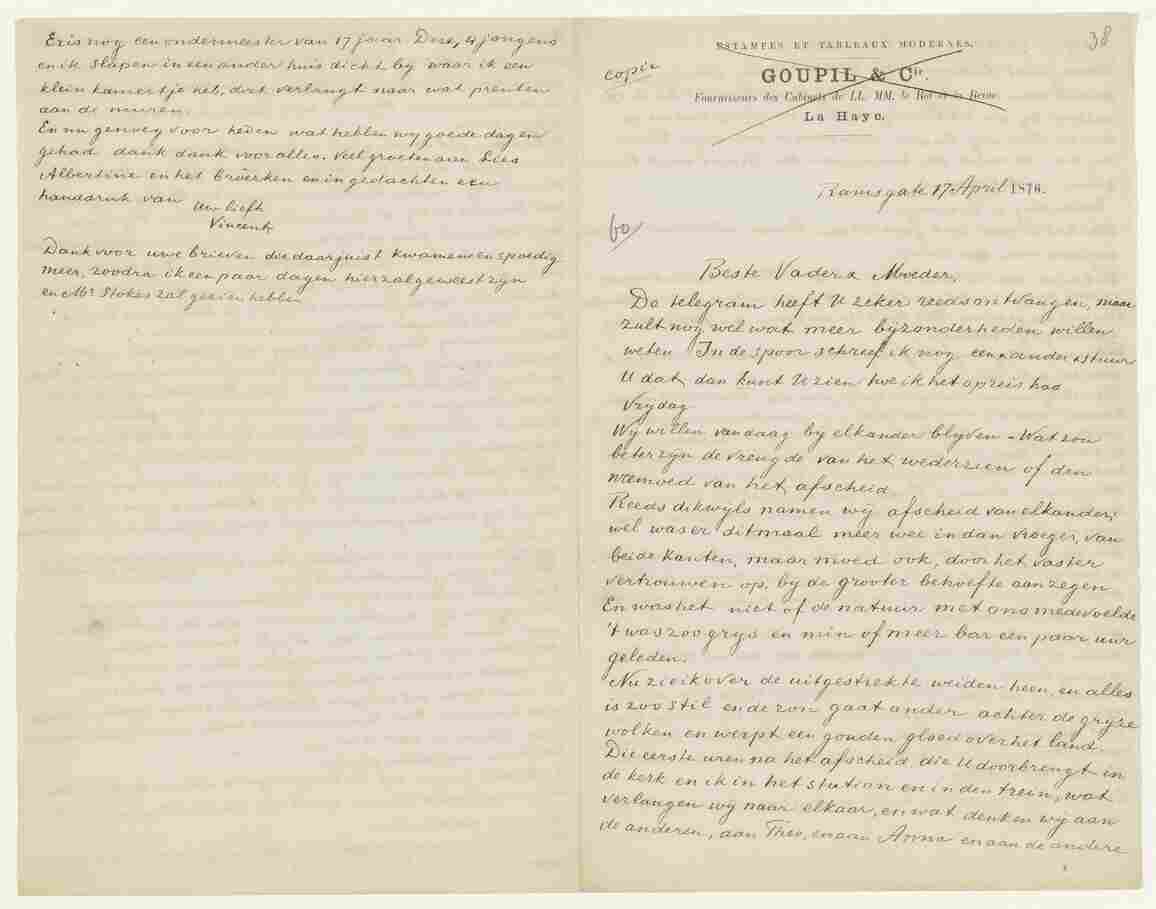 Er is nog een ondermeester van 17 jaar. Deze, 4 jongens
en ik slapen in een ander huis dicht by waar ik een
klein kamertje heb, dat verlangt naar wat prenten
aan de muren.
En nu genoeg voor heden wat hebben wy goede dagen
gehad dank dank voor alles. Veel groeten aan Lies
Albertine en het broêrken en in gedachten een
handdruk van Uw liefh
Vincent
Dank voor uwe brieven die daar juist kwamen en spoedig
meer, zoodra ik een paar dagen hier zal geweest zyn
en Mr. Stokes zal gezien hebben
38
ESTAMPES ET TABLEAUX MODERNES.
copie
GOUPIL & Cie.
Fournisseurs des Cabinets de LL. MM. le Roi et la Reine
La Haye.
Ramsgate 17 April 1876.
60
Beste Vader & Moeder,
De telegram heeft U zeker reeds ontvangen, maar
zult nog wel wat meer byzonderheden willen
weten In de spoor schreef ik nog een & ander & stuur
U dat, dan kunt U zien hoe ik het op reis had
Vrydag
Wy willen vandaag by elkander blyven - Wat zou
beter zyn de vreugde van het wederzien of den
weemoed van het afscheid
Reeds dikwyls namen wy afscheid van elkander;
wel was er ditmaal meer wee in dan vroeger, van
beide kanten, maar moed ook, door het vaster
vertrouwen op, by de grooter behoefte aan zegen
En was het niet of de natuur met ons medevoelde
't was zoo grys en min of meer bar een paar uur
geleden.
Nu zie ik over de uitgestrekte weiden heen, en alles
is zoo stil en de zon gaat onder achter de gryze
wolken en werpt een gouden gloed over het land.
Die eerste uren na het afscheid, die U doorbrengt in
de kerk en ik in het station en in den trein, wat
verlangen wy naar elkaar, en wat denken wy aan
de anderen, aan Theo, en aan Anna en aan de andere